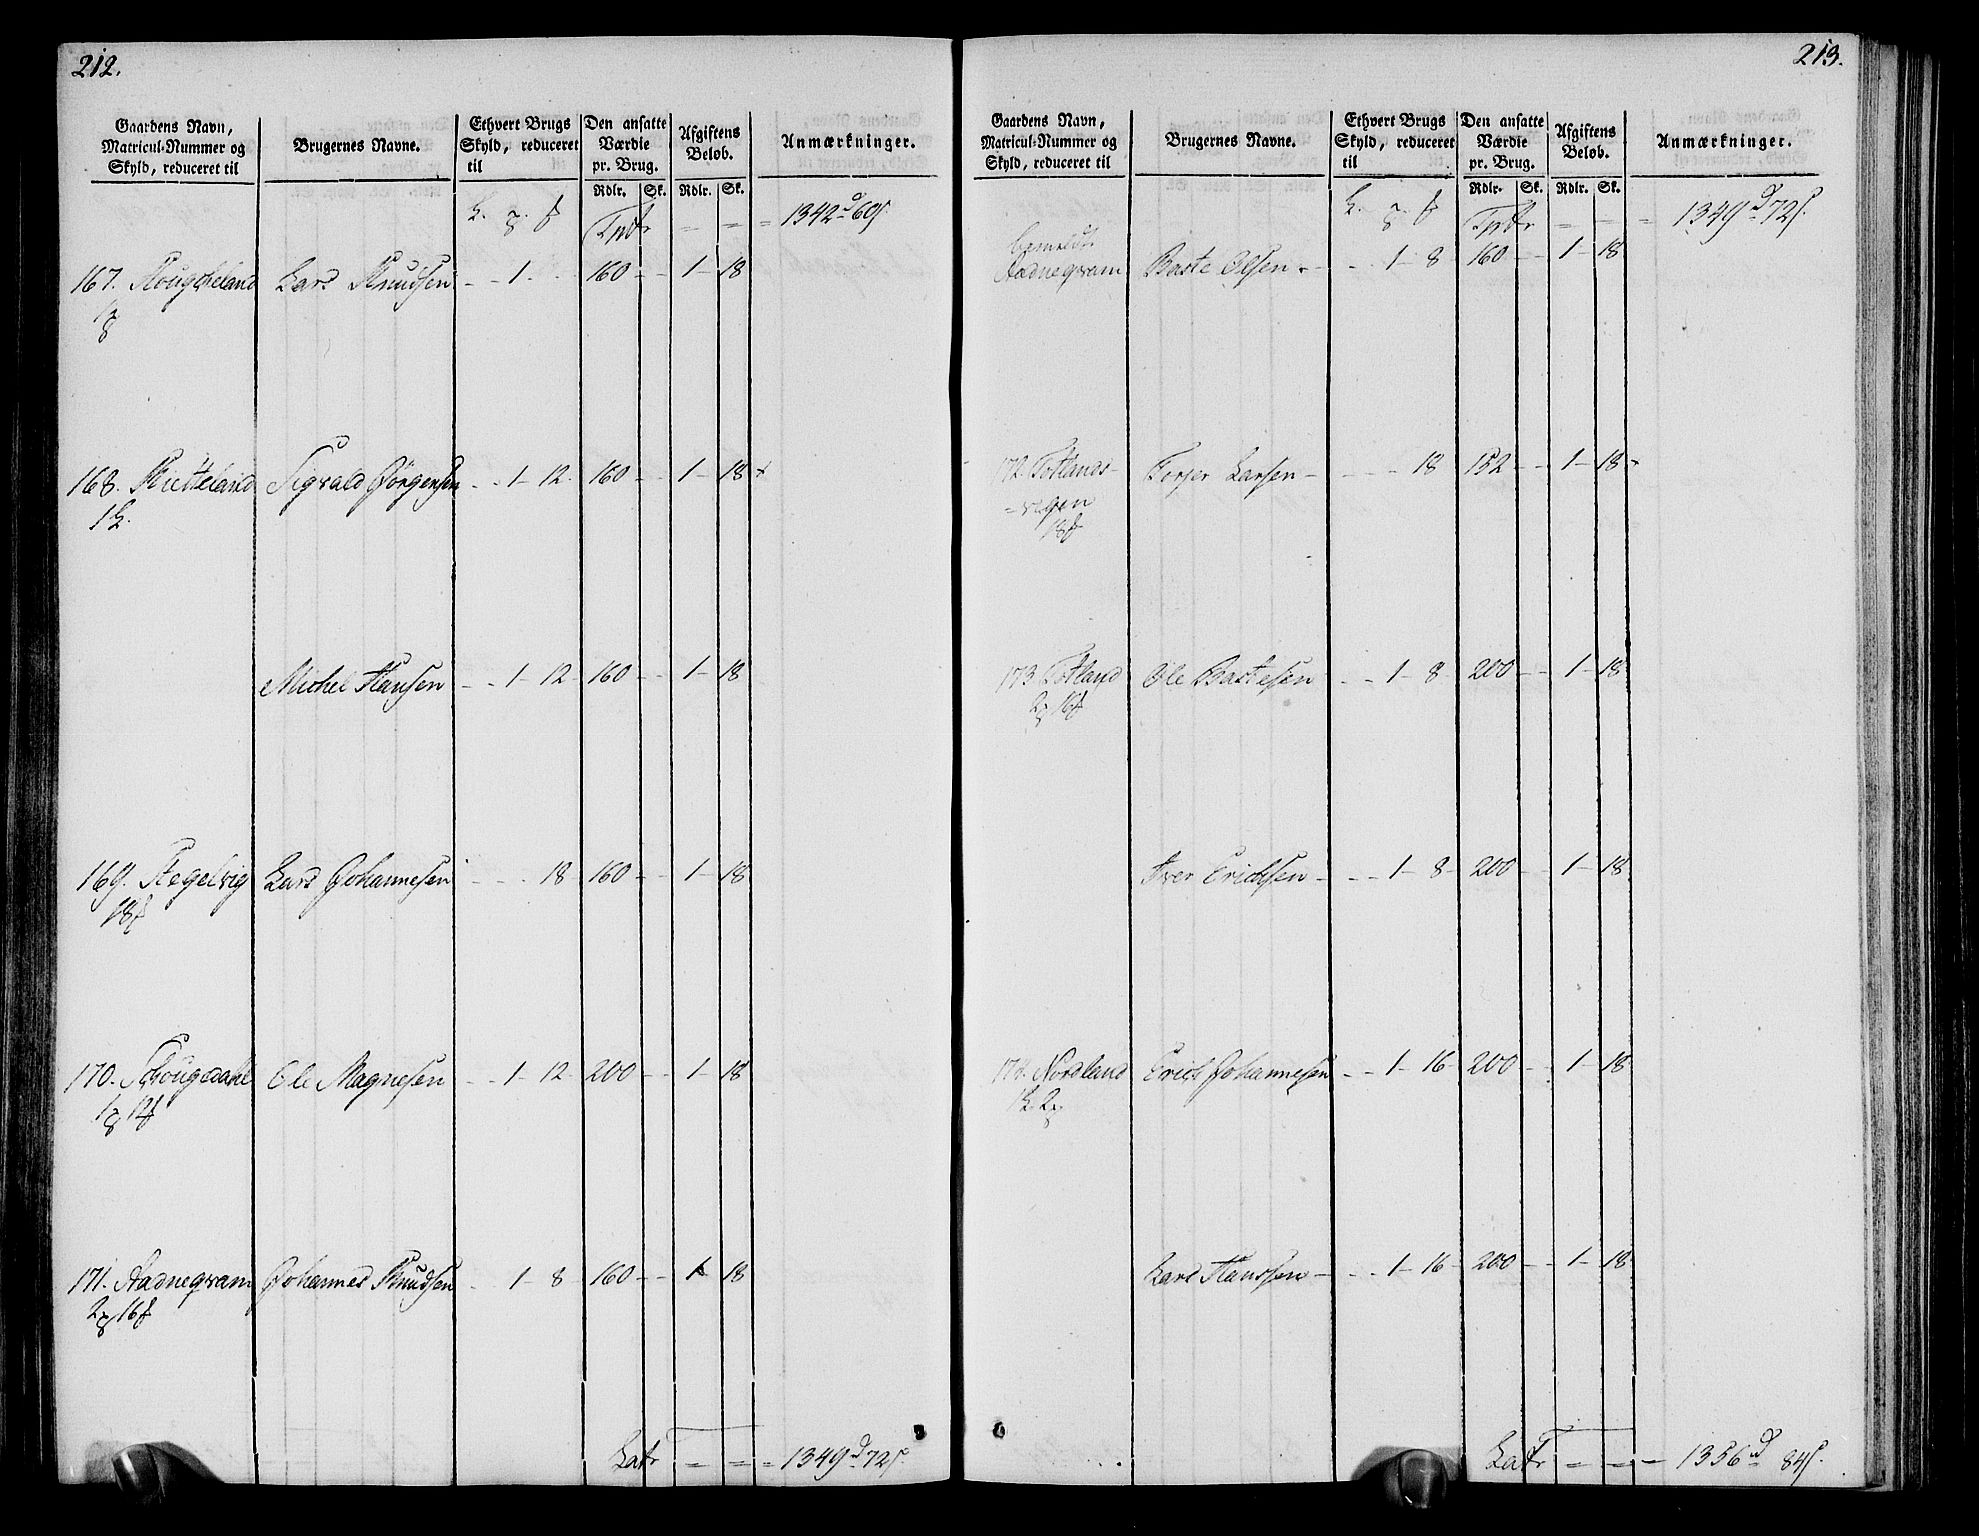 212.
Gaardens Navn, Matricul-Nummer og Skyld, reduceret til
Brugernes Navne.
Ethvert Brugs Skyld, reduceret til
Den ansatte Værdie pr. Brug.
Afgiftens Beløb.
Anmærkninger.
Rdlr. Sk. Rdlr. Sk.
Tpt = = = 1342 d 60 s.
167. Lars Knudsen - - 1 - 160 - - 1 - 18
168. Sigvald Jörgensen - - 1 - 12. 160 - - 1 - 18
Michel Hansen - - 1 - 12 - 160 - - 1 - 18
169. Hegelvig Lars Johannesen - - - 18 160 - - 1 - 18
18
170. Ole Magnesen - - 1 - 12 - 200 - - 1 - 18
1 12
171. Aadneqvam Johannes Knudsen - 1 - 8 - 160 - - 1 - 18
2 16
Latr = = = 1349 d 72 s.
213.
Gaardens Navn, Matricul-Nummer og Skyld, reduceret til
Brugernes Navne.
Ethvert Brugs Skyld, reduceret til
Den ansatte Værdie pr. Brug.
Afgiftens Beløb.
Anmærkninger.
Rdlr. Sk. Rdlr. Sk.
Tpt = = = 1349 d 72 s.
bemeldte
Aadneqvam Baste Olsen - - - 1 - 8 160 - - 1 - 18
172. Totlands- Larsen - - - - 18 152 - - 1 - 18
18
173 Totland Ole Bastesen - - 1 - 8 200 - - 1 - 18
2 16
Iver Erichsen - - - 1 - 8 - 200 - - 1 - 18
174. Nordland Erich Johannesen - - 1 - 16 200 - - 1 - 18
1 2
Lars Hanssen - - - 1 - 16 - 200 - - 1 - 18
Latr = = = 1356 d 84 s.